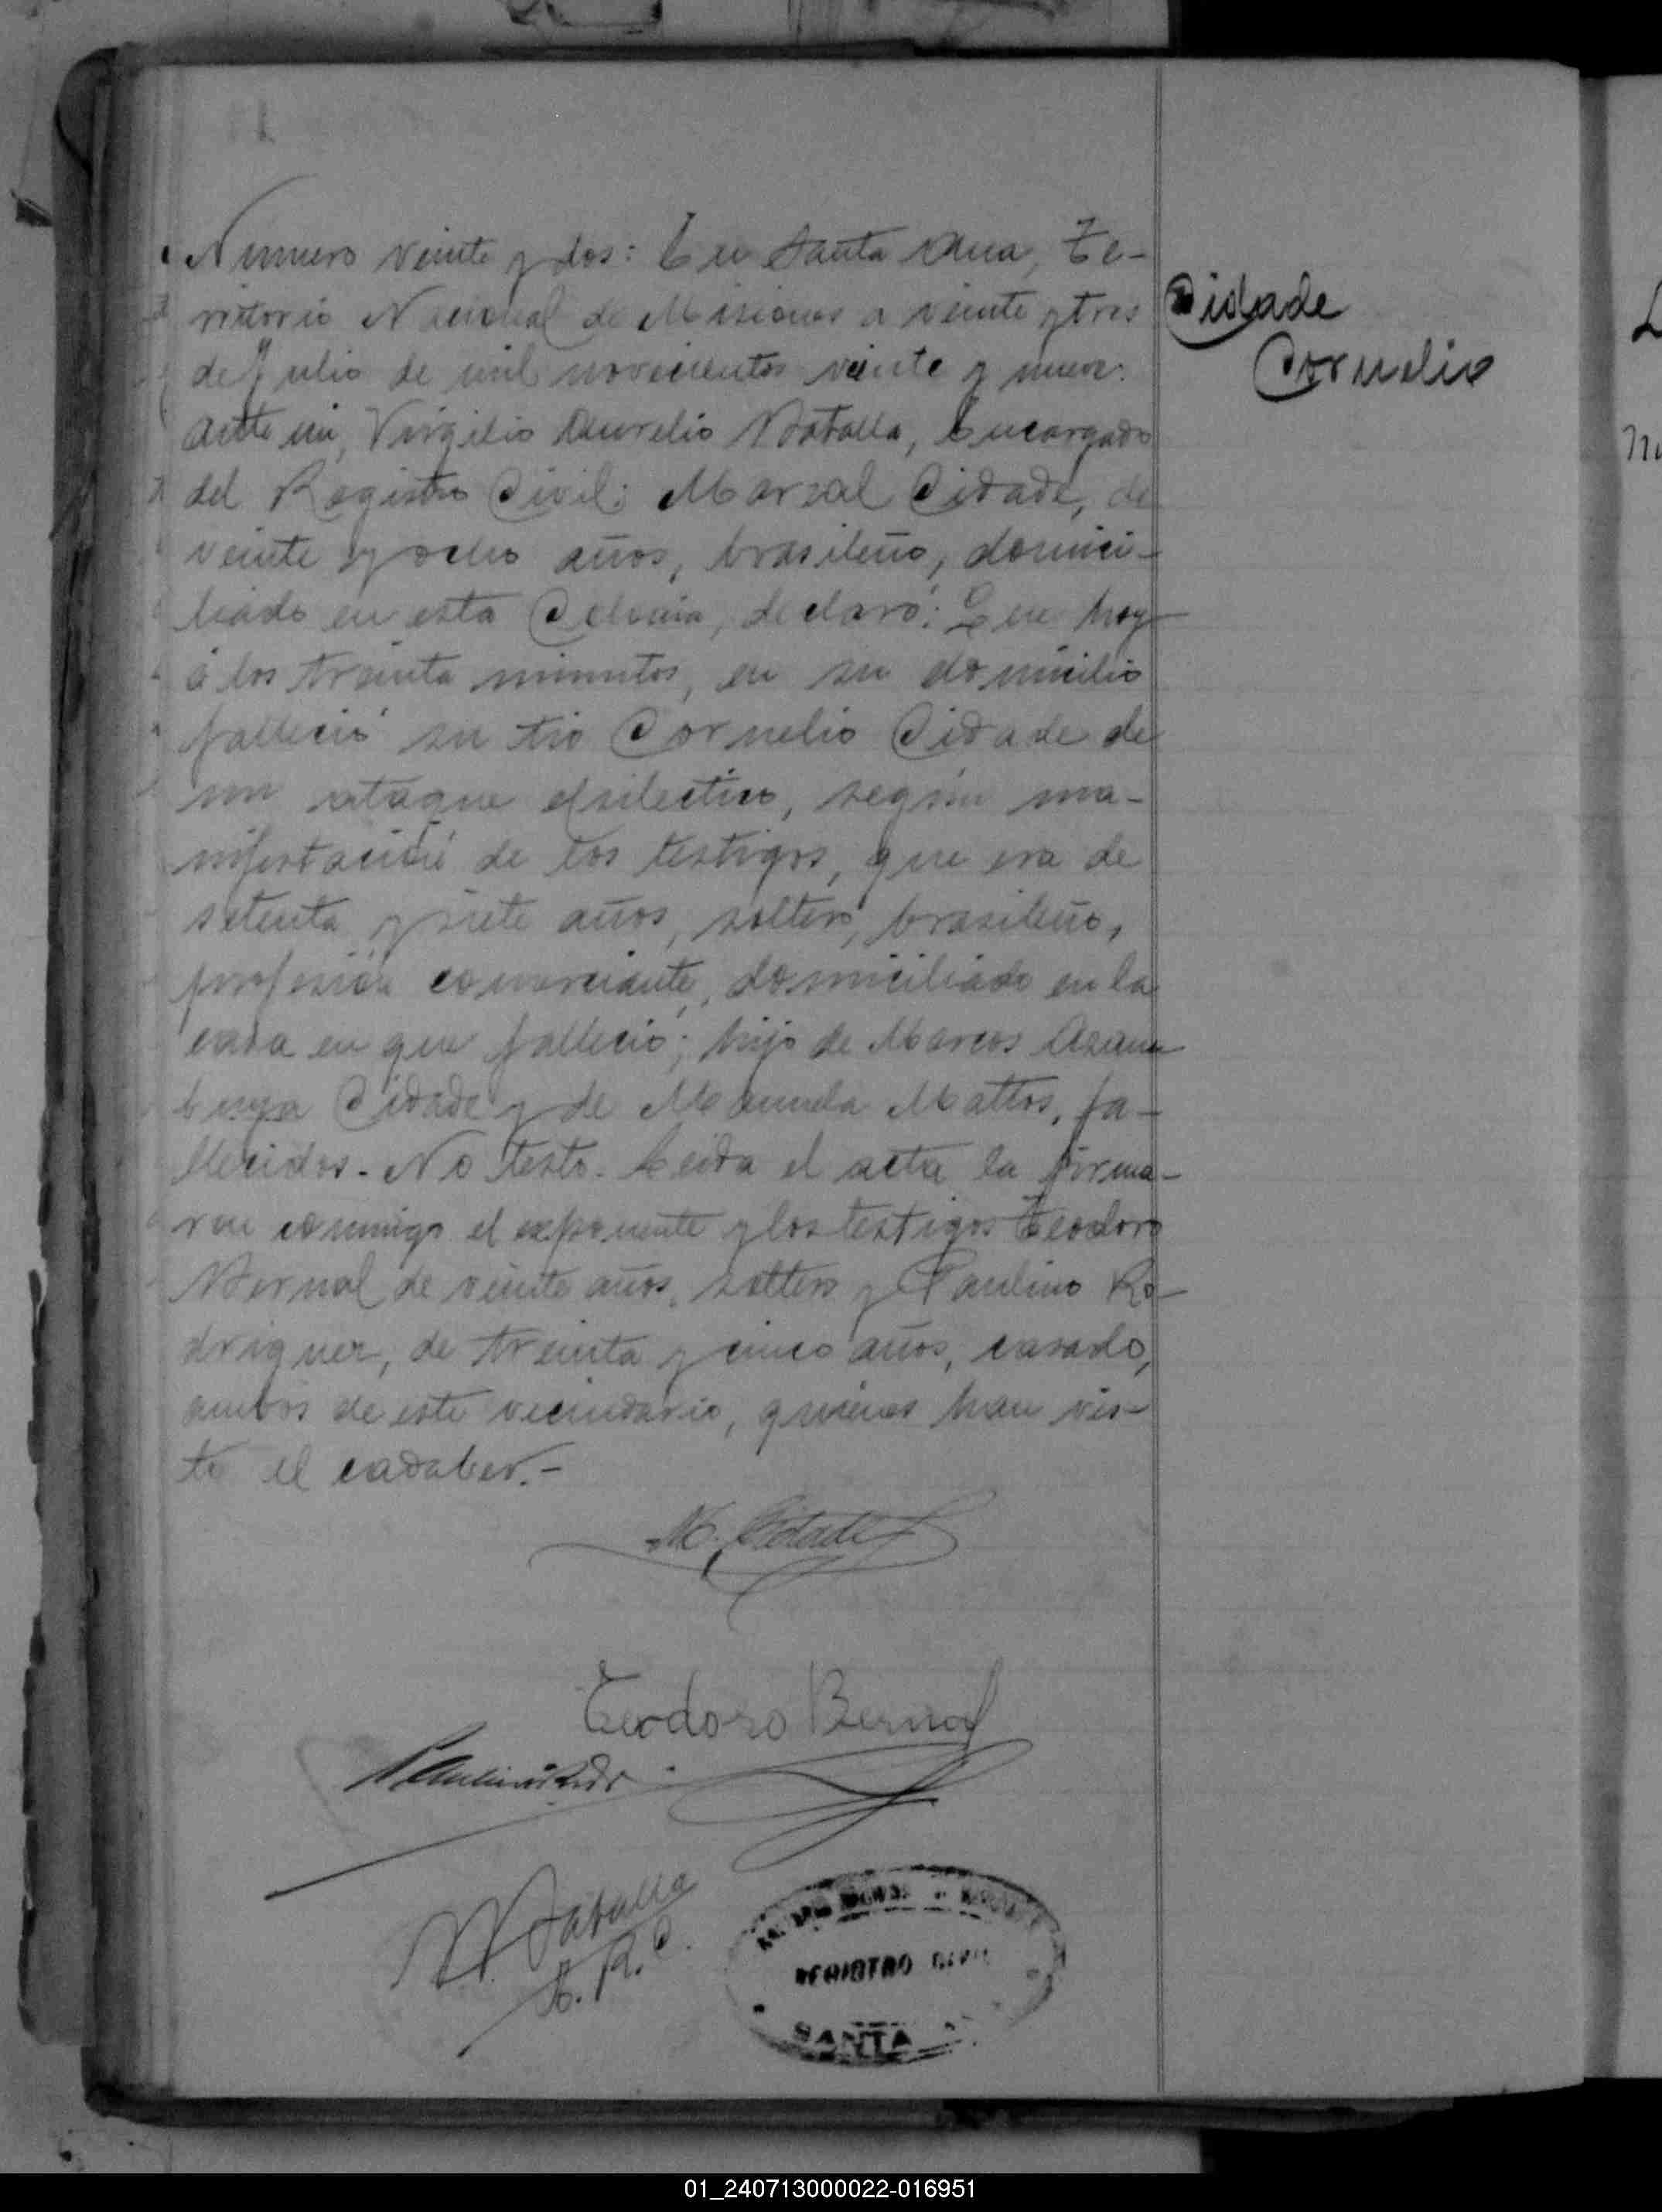 Numero veinte y dos: En Santa Ana, Te-
rritorio Nacional de Misiones a veinte y tres
de Julio de mil novecientos veinte y nueve:
Ante mi, Virgilio Aurelio Batalla, Encargado
del Registro Civil: Marsal Cidade, de
veinte y ocho años, brasileño, domici-
liado en esta Colonia, declaró: Que hoy
á los treinta minutos, en su domicilio
falleció su tio Cornelio Cidade de
un ataque elsilectico, según ma-
nifestación de los testigos, que era de
setenta y siete años, soltero, brasileño,
profesión comerciante, domiciliado en la
casa en que falleció; hijo de Marcos Azam
buya Cidade y de Manuela Mattos, fa-
llecidos. No testo. Leida el acta la firma-
ron conmigo el exponente y los testigos Teodoro
Bernal de veinte años, soltero y Paulino Ro-
driguez, de treinta y cinco años, casado,
ambos de este vecindario, quienes han vis-
to el cadaber.-
Cidade
Cornelio
M. Cidade
Teodoro Bernal
Paulino Rodr
V. Batalla
E. R. C.
REGISTRO CIVIL
SANTA
01_240713000022-016951